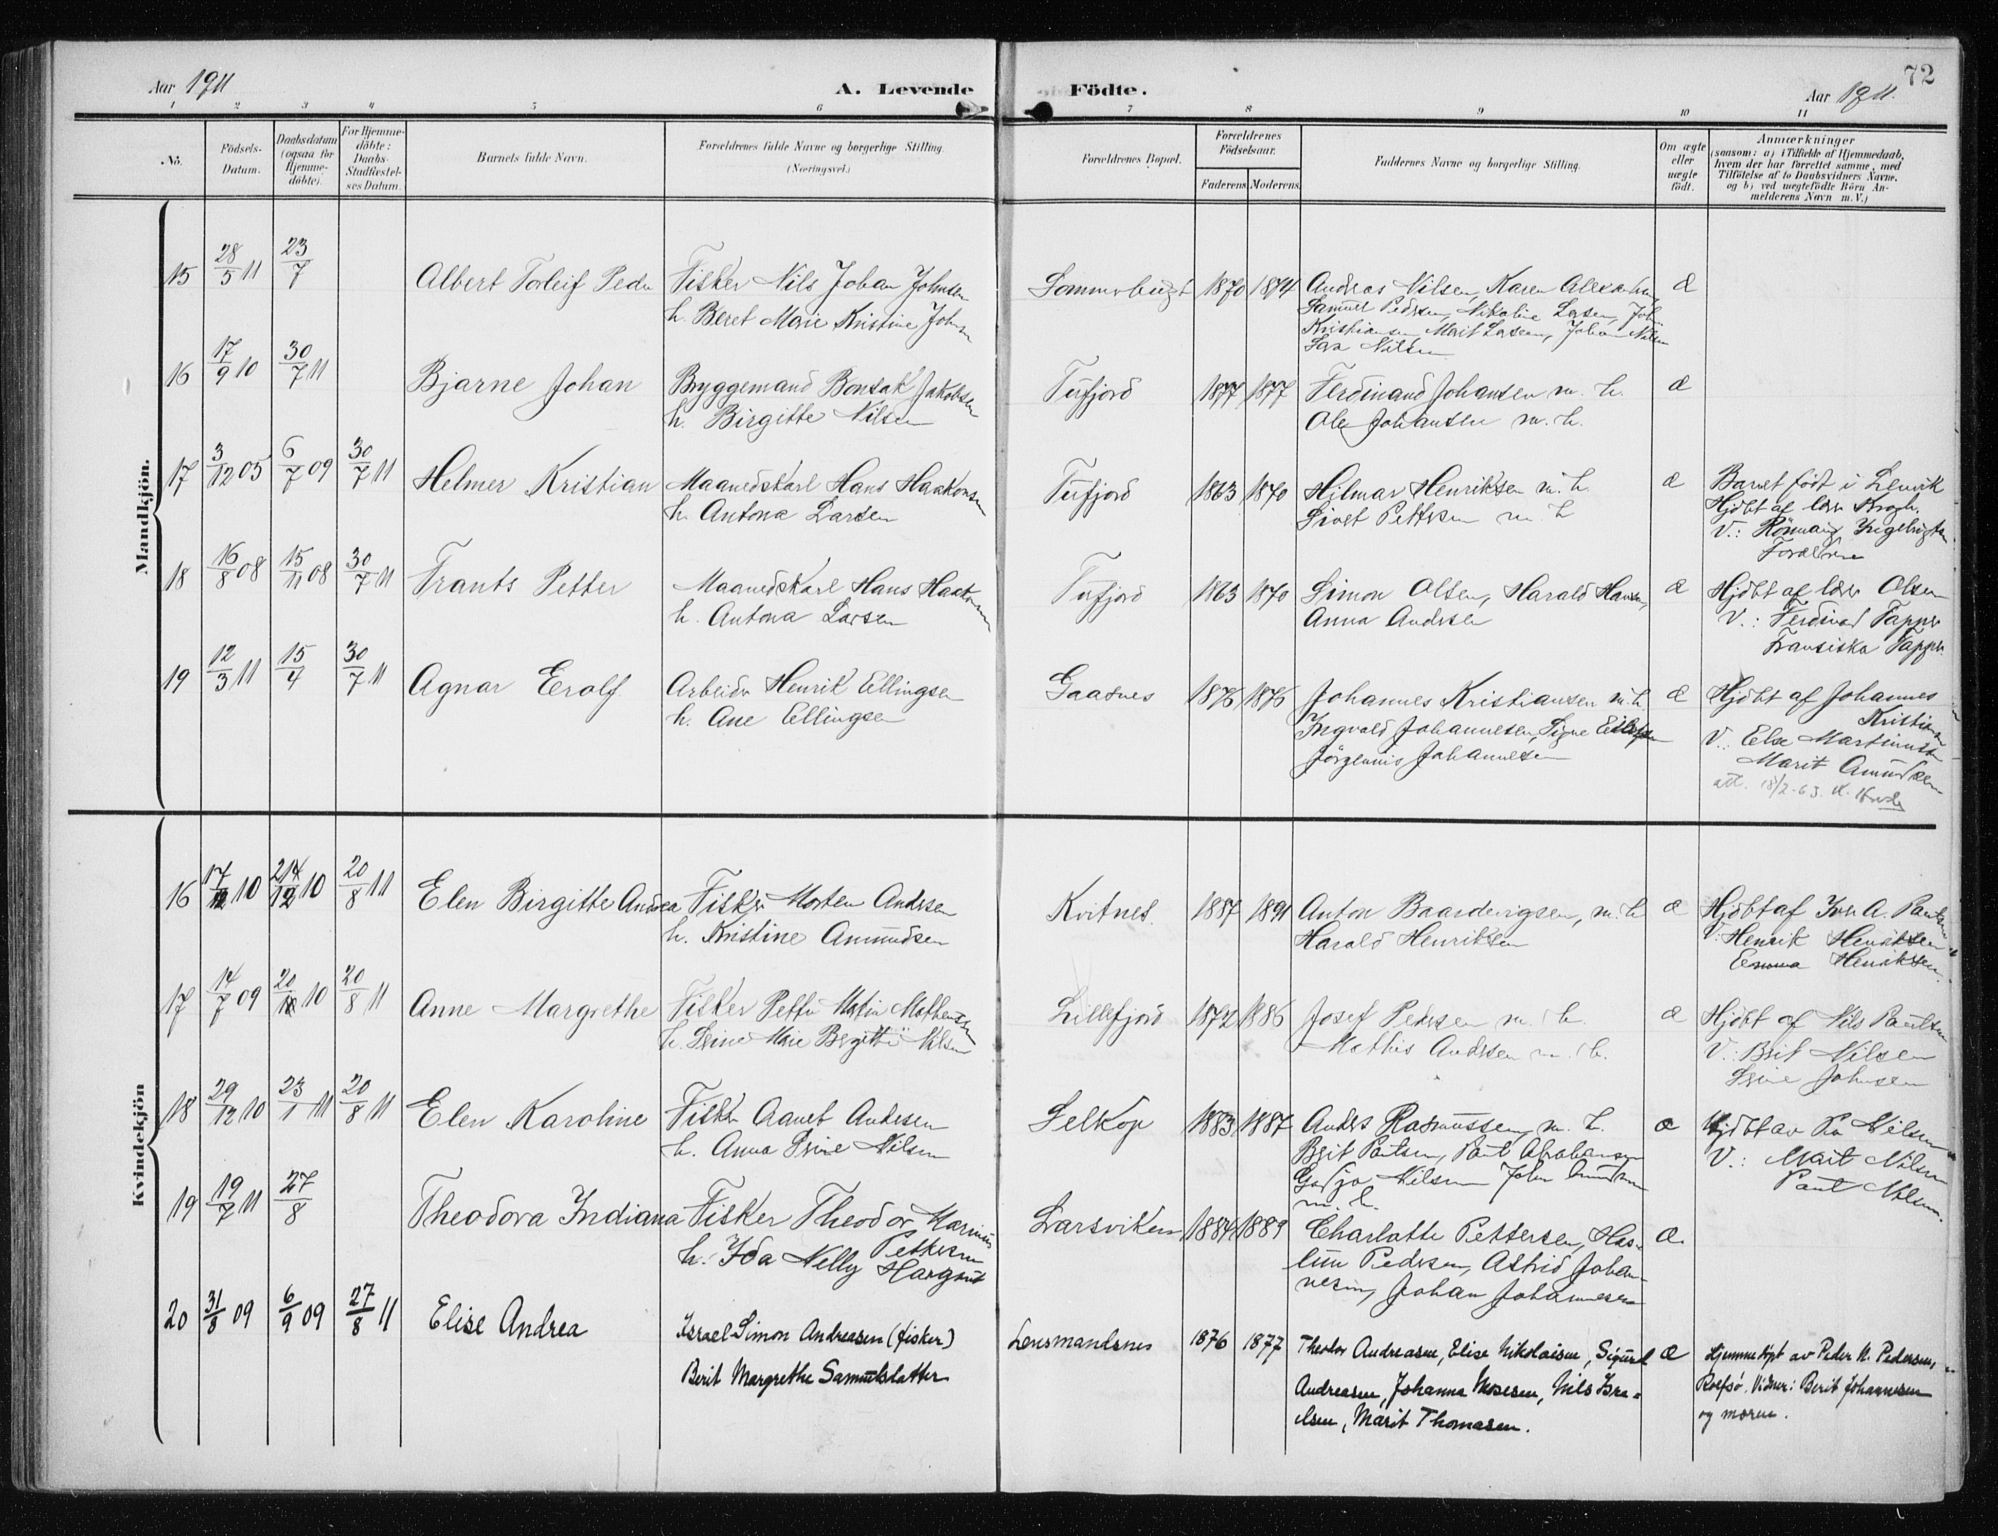 72
Aar 1911
A. Levende
Födte.
Aar 1911.
1 2 3 4 5 6 7 8 9 10 11
No.
Födsels-
Datum.
Daabsdatum
(ogsaa for
Hjemme-
döbte).
For Hjemme-
döbte:
Daabs-
Stadfæstel-
ses Datum.
Barnets fulde Navn.
Forældrenes fulde Navne og borgerlige Stilling.
(Næringsvei.)
Forældrenes Bopæl.
Forældrenes
Födselsaar.
Faderens. Moderens.
Faddernes Navne og borgerlige Stilling.
Om ægte
eller
uægte
födt.
Anmærkninger
(saasom: a) i Tilfælde af Hjemmedaab,
hvem der har forrettet samme, med
Tilföielse af to Daabsvidners Navne,
og b) ved uægtefödte Börn An-
melderens Navn m. V.)
Mandkjön.
15 28/5 11 23/7 Albert Toleif Peder Fisker Nils Johan Johnsen Sommerbugt 1870 1874 Andreas Nilsen, Karen Æ
h. Beret Marie Kristine Johnsen Samuel Pedersen, Nikoline Larsen,
Kristiansen, Marit Larsen, Johan Nilsen
Sara Nilsen
16 17/9 10 30/7 11 Bjarne Johan Bryggemand Bonsak Jakobsen Tufjord 1877 1877 Ferdinand Johansen m. h. æ
h. Birgitte Nilsen Ole Johansen m. h.
17 3/12 05 6/7 09 30/7 11 Helmer Kristian Maanedskarl Hans Haakonsen Tufjord 1863 1870 Hilmar Henriksen m. h. æ Barnet född i Lenvik
h. Antona Larsen Sivert Pettersen m. h. Hjdbt af lærer Krogh.
V.: Ingebrigtsen
Forældrene
18 16/8 08 15/11 08 30/7 11 Frants Petter Maanedskarl Hans Haakonsen Tufjord 1863 1870 Simon Olsen, Harald Hansen, æ Hjdbt af lærer Olsen
h. Antona Larsen Anna Andersen V.: Ferdinand Tapper
Fransiska Tapper.
19 12/3 11 15/4 30/7 11 Agnar Erolf Arbeider Henrik Ellingsen Gaasnes 1876 1876 Johannes Kristiansen m. h. æ Hjdbt af Johannes
h. Ane Ellingsen Ingvald Johannesen, Signe Kristiansen
Jörgennis Johannesen V.: Else Martinussen
Marit Amundsen
att. 18/2-63.
Kvindekjön
16 17/12 10 24/12 10 20/8 11 Elen Birgitte Andrea Fisker Morten Andersen Kvitnes. 1887 1891 Anton Baardvigsen, m. h. æ Hjdbt af Iver A. Paulsen
h. Kristine Amundsen Harald Henriksen V: Henrik Henriksen
Emma Henriksen.
17 14/7 09 20/ 10 20/8 11 Anne Margrethe Fisker Petter Martin Mathensen Lillefjord 1872 1886 Josef Pedersen m. h. æ Hjdbt af Nils Paulsen
h. Marie Bergitte Nilsen Mathis Andersen m. h. V.: Brit Nilsen
Johnsen
18 29/12 10 23/1 11 20/8 11 Elen Karoline Fisker Andersen Selkop 1883 1887 Anders Rasmussen m. h. æ Hjdbt av Nilsen
h. Anna Nilsen Berit Paulsen, Paul Abrahamsen V.: Marit Nilsen
Nilsen John Paul Nilsen.
m. h.
19 19/7 11 27/8 Theodora Indiana Fisker Theodor Marinius Larsviken 1884 1889 Charlotte Pettersen, Has- æ.
Pettersen lun Pedersen, Astrid Johan-
h. Ida Nelly nesen, Johan Johannesen
20 31/8 09 6/9 09 27/8 11 Elise Andrea Israel Simon Andreasen (fisker) Lensmandsnes 1876 1877 Theodor Andreasen, Elise Nikolaisen, Sigurd æ Hjemmedöpt av Peder N. Pedersen,
Berit Margrethe Samuelsdatter Andreasen, Johanna Mosesen, Nils Isra- Rolfsö. Vidner: Berit Johannesen
elsen, Marit Thomasen. og moren.